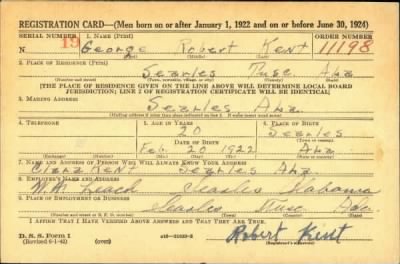 REGISTRATION CARD—(Men born on or after January 1, 1922 and on or before June 30, 1924)
SERIAL NUMBER 1. NAME (Print) ORDER NUMBER
N 19 George Robert Kent 11198
2. PLACE OF RESIDENCE (Print)
Searles Tusc. Ala
(Number and street) (Town, township, village, or city) (County) (State)
[THE PLACE OF RESIDENCE GIVEN ON THE LINE ABOVE WILL DETERMINE LOCAL BOARD
JURISDICTION; LINE 2 OF REGISTRATION CERTIFICATE WILL BE IDENTICAL]
3. MAILING ADDRESS
Searles Ala.
(Mailing address if other than place indicated on line 2. If same insert word same)
4. TELEPHONE 5. AGE IN YEARS 6. PLACE OF BIRTH
20 Searles
DATE OF BIRTH (Town or county)
Feb 20 1922 Ala
(Exchange) (Number) (Mo.) (Day) (Yr.) (State or country)
7. NAME AND ADDRESS OF PERSON WHO WILL ALWAYS KNOW YOUR ADDRESS
Kent Searles Ala
8. EMPLOYER'S NAME AND ADDRESS
W. M. Leach Searles Alabama
9. PLACE OF EMPLOYMENT OR BUSINESS
Searles Tusc. Ala.
(Number and street or R. F. D. number) (Town) (County) (State)
I AFFIRM THAT I HAVE VERIFIED ABOVE ANSWERS AND THAT THEY ARE TRUE.
D. S. S. Form 1
(Revised 6-1-42) (over) Robert Kent
(Registrant's signature)